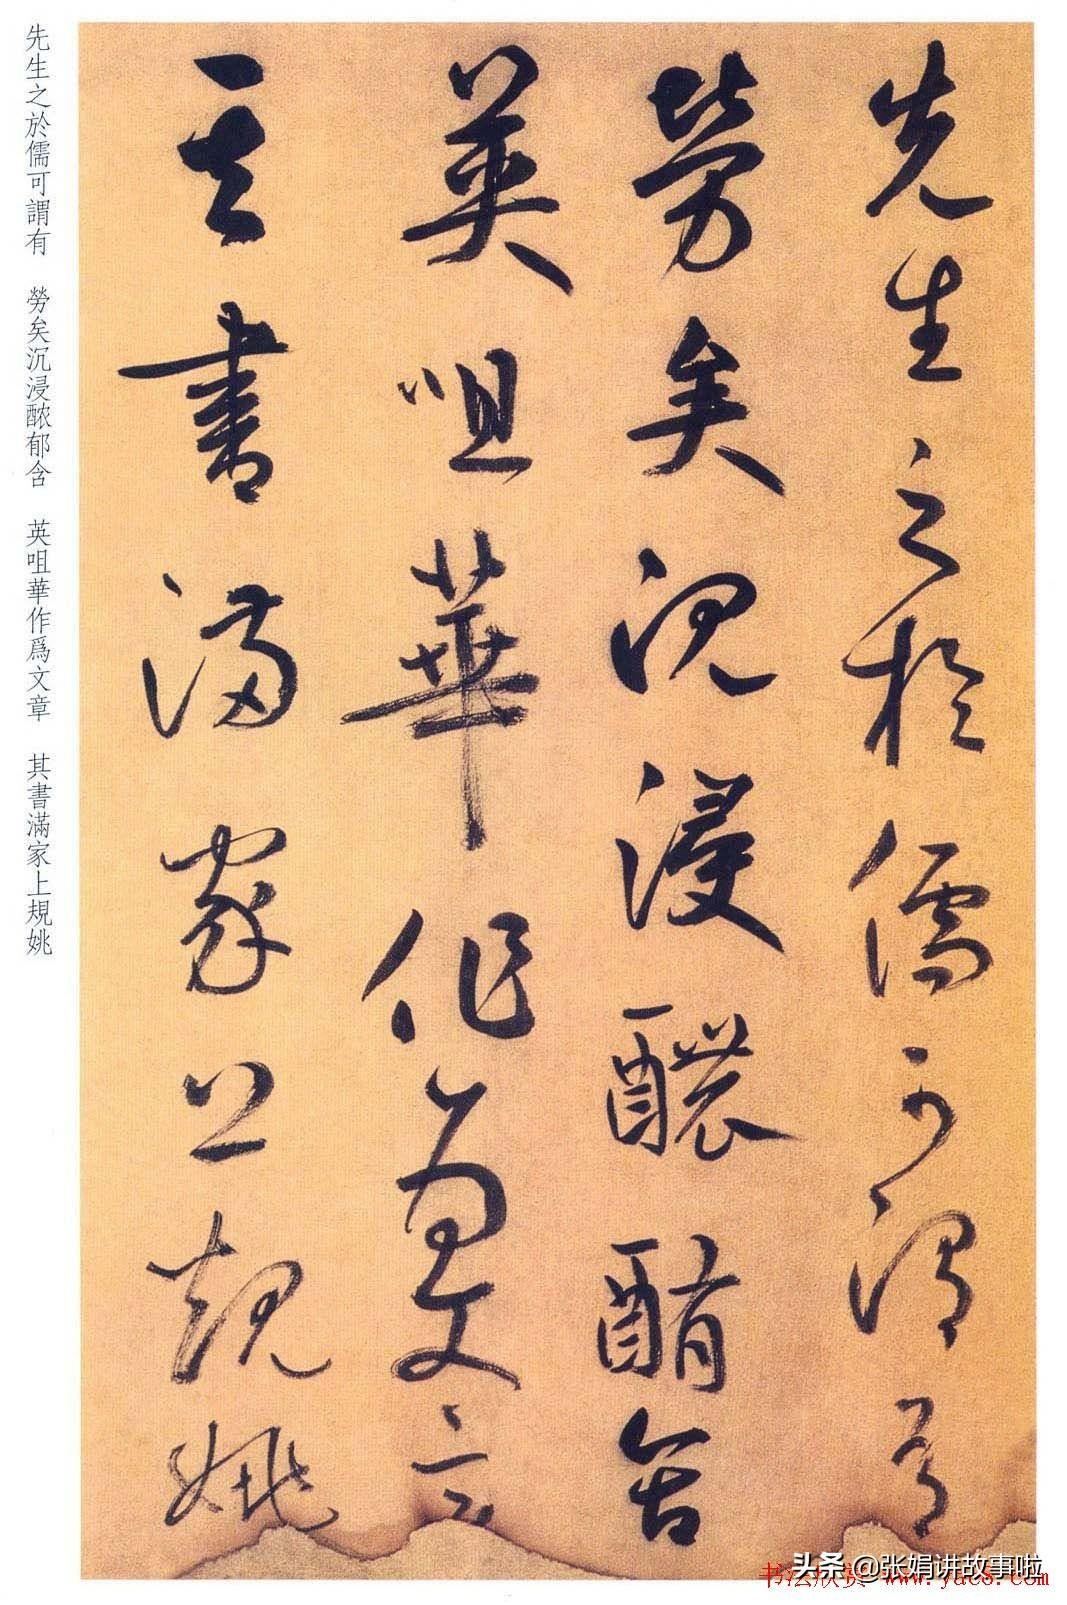 先生之於儒可謂有
勞矣沉浸醲郁含
英咀華作為文章
其書滿家上規姚
先生之於儒可謂有 勞矣沉浸醲郁含 英咀華作爲文章 其書滿家上規姚
头条 @张娟讲故事啦
书法欣赏 www.yac8.com